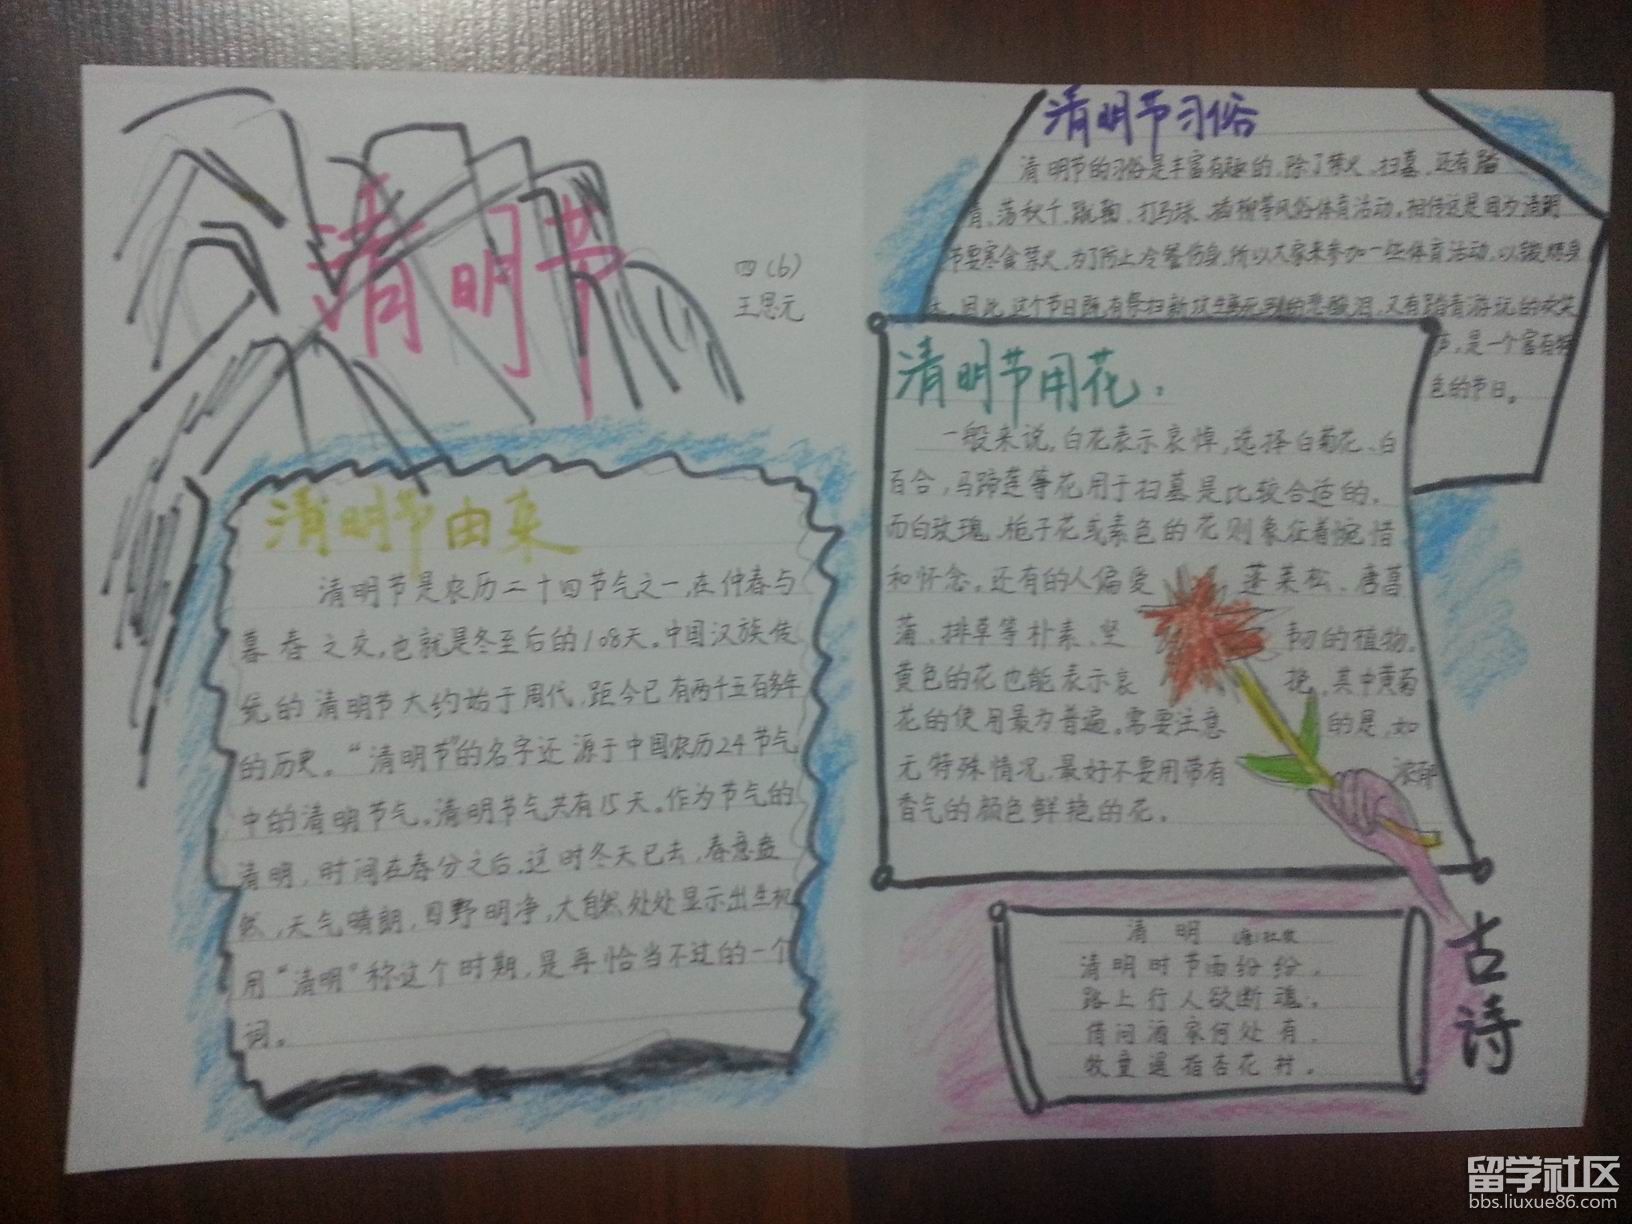 清明节
四(6)
王思元
清明节由来
清明节是农历二十四节气之一,在仲春与
暮春之交,也就是冬至后的108天。中国汉族传
统的清明节大约始于周代,距今已有两千五百多年
的历史。“清明节”的名字还源于中国农历24节气
中的清明节气。清明节气共有15天。作为节气的
清明,时间在春分之后。这时冬天已去,春意盎
然,天气晴朗,四野明净,大自然处处显示出生机
用“清明”称这个时期,是再恰当不过的一个
词。
清明节习俗
清明节的习俗是丰富有趣的,除了禁火、扫墓,还有踏
青、荡秋千、蹴鞠、打马球、插柳等风俗体育活动。相传这是因为清明
节要寒食禁火,为了防止冷餐伤身,所以大家来参加一些体育活动,以锻炼身
体。因此,这个节日既有祭扫新坟生离死别的悲酸泪,又有踏青游玩的欢笑
声,是一个富有特
色的节日。
清明节用花.
一般来说,白花表示哀悼,选择白菊花、白
百合,马蹄莲等花用于扫墓是比较合适的,
而白玫瑰、栀子花或素色的花则象征着惋惜
和怀念。还有的人偏爱蓬莱松、唐菖
蒲、排草等朴素、坚韧的植物。
黄色的花也能表示哀挽,其中黄菊
花的使用最为普遍。需要注意的是,如
无特殊情况,最好不要用带有浓郁
香气的颜色鲜艳的花。
清明 (唐)杜牧
清明时节雨纷纷,
路上行人欲断魂。
借问酒家何处有,
牧童遥指杏花村。
古诗
留学社区
bbs.liuxue86.com